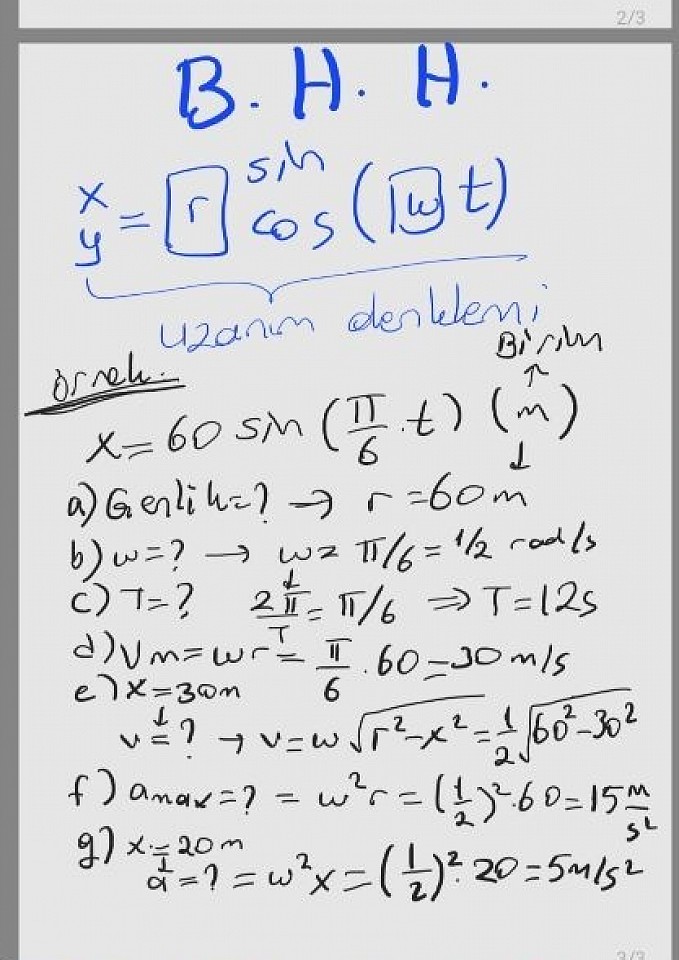 2/3
B. H. H.
x
y = r sin
cos (w t)
uzanım denklemi
Birim
Örnek.
x = 60 sin (π/6 . t) (m)
a) Genlik = ? → r = 60 m
b) w = ? → w = π/6 = 1/2 rad/s
c) T = ? 2π/T = π/6 ⇒ T = 12s
d) Vm = wr = π/6 . 60 = 30 m/s
e) x = 30m
↓
v = ? → v = w √(r² - x²) = 1/2 √(60² - 30²)
f) amax = ? = w²r = (1/2)² . 60 = 15 m/s²
g) x = 20 m
↓
a = ? = w²x = (1/2)² . 20 = 5 m/s²
3/3